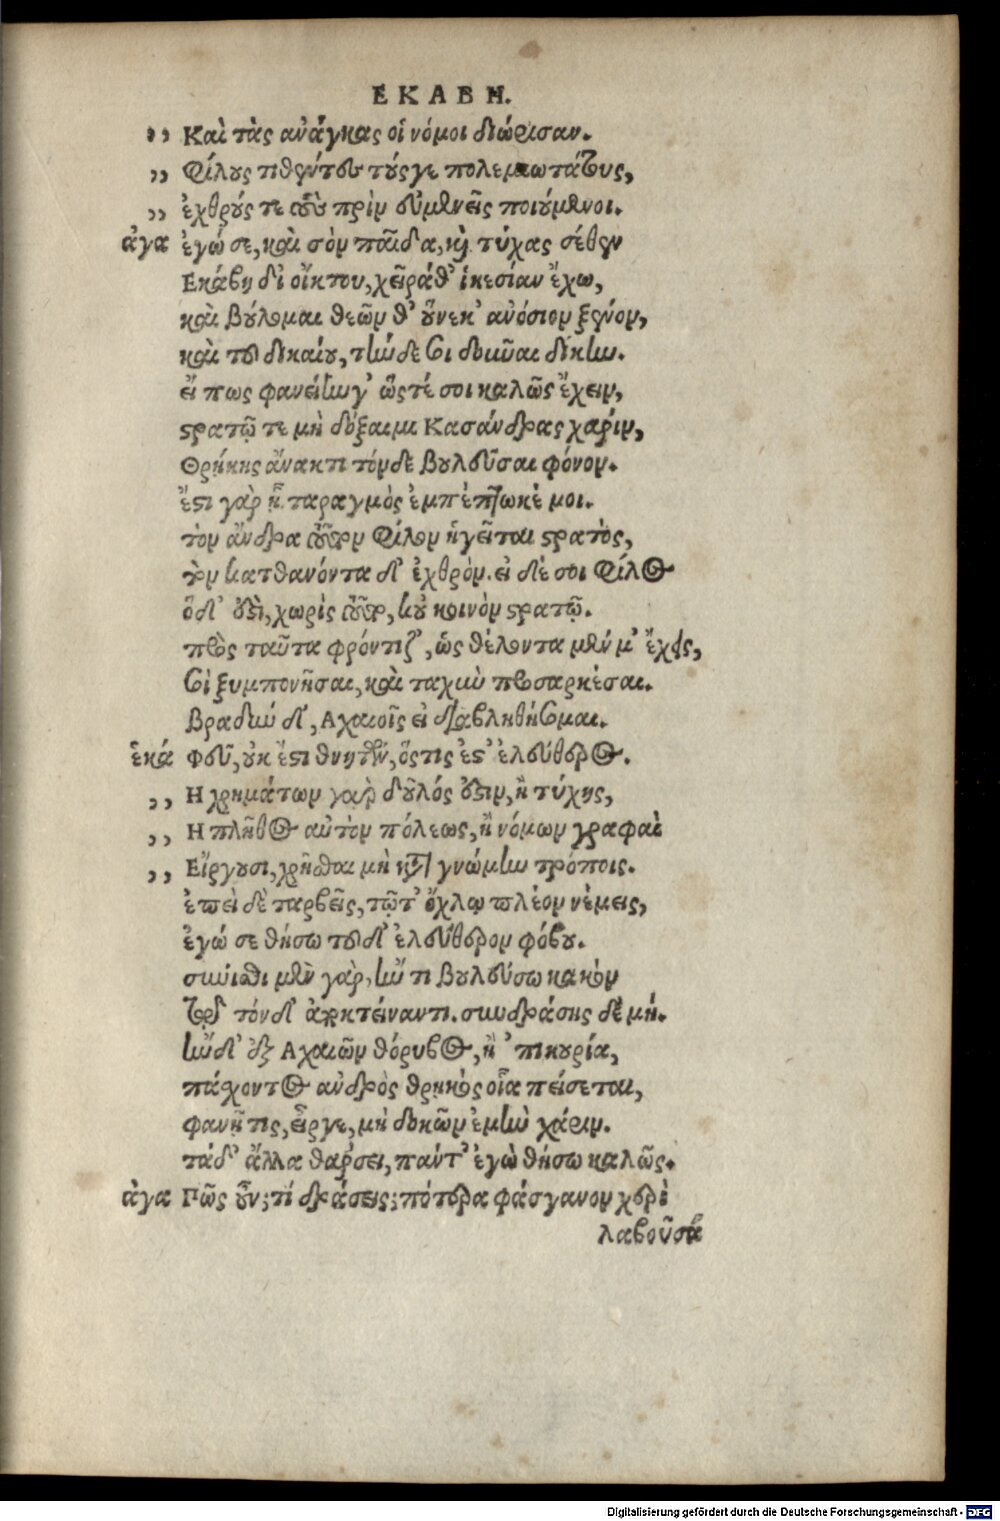 ΕΚΑΒΗ.
,, Καὶ τὰς ἀνάγκας οἱ νόμοι διώρισαν.
,, Φίλους τιθέντες τούς γε πολεμιωτάτους,
,, ἐχθρούς τε τοὺς πρὶν εὐμενεῖς ποιούμενοι.
ἀγα ἐγώ σε, καὶ σὸν παῖδα, καὶ τύχας σέθεν
Εκάβη δι οἴκτου, χεῖρά θ' ἱκεσίαν ἔχω,
καὶ βούλομαι θεῶν θ' οὕνεκ' ἀνόσιον ξένον,
καὶ τοῦ δικαίου, τήνδε σοι δοῦναι δίκην.
εἴ πως φανείη γ' ὥςτέ σοι καλῶς ἔχειν,
στρατῷ τε μὴ δόξαιμι Κασάνδρας χάριν,
Θρῄκης ἄνακτι τόνδε βουλεῦσαι φόνον.
ἔστι γὰρ ᾗ ταραγμὸς ἐμπέπτωκέ μοι.
τὸν ἄνδρα τοῦτον φίλον ἡγεῖται στρατὸς,
τὸν κατθανόντα δ' ἐχθρόν. εἰ δέ σοι φίλος
ὅδ' ἐστὶ, χωρὶς τοῦτο, κοὐ κοινὸν στρατῷ.
πρὸς ταῦτα φρόντιζ', ὡς θέλοντα μέν μ' ἔχεις,
σοὶ ξυμπονῆσαι, καὶ ταχὺν προσαρκέσαι.
βραδὺν δ', Αχαιοῖς εἰ διαβληθήσομαι.
ἑκά Φεῦ, οὐκ ἔστι θνητῶν, ὅςτις ἐς' ἐλεύθερος.
,, Η χρημάτων γὰρ δοῦλός ἐστιν, ἢ τύχης,
,, Η πλῆθος αὐτὸν πόλεως, ἢ νόμων γραφαὶ
,, Εἴργουσι, χρῆσθαι μὴ κατὰ γνώμην τρόποις.
ἐπεὶ δὲ ταρβεῖς, τῷτ' ὄχλῳ πλέον νέμεις,
ἐγώ σε θήσω τοῦδ' ἐλεύθερον φόβου.
σύνισθι μὲν γὰρ, ἤν τι βουλεύσω κακὸν
τῷ τόνδ' ἀποκτείναντι. συνδράσης δὲ μή.
ἢν δ' ἐξ Αχαιῶν θόρυβος, ἢ 'πικουρία,
πάσχοντος ἀνδρὸς θρῃκὸς οἷα πείσεται,
φανῇ τις, εἶργε, μὴ δοκῶν ἐμὴν χάριν.
τάδ' ἄλλα θάρσει, πάντ' ἐγὼ θήσω καλῶς.
ἀγα Πῶς οὖν; τί δράσεις; πότερα φάσγανον χερὶ
λαβοῦσα
Digitalisierung gefördert durch die Deutsche Forschungsgemeinschaft - DFG